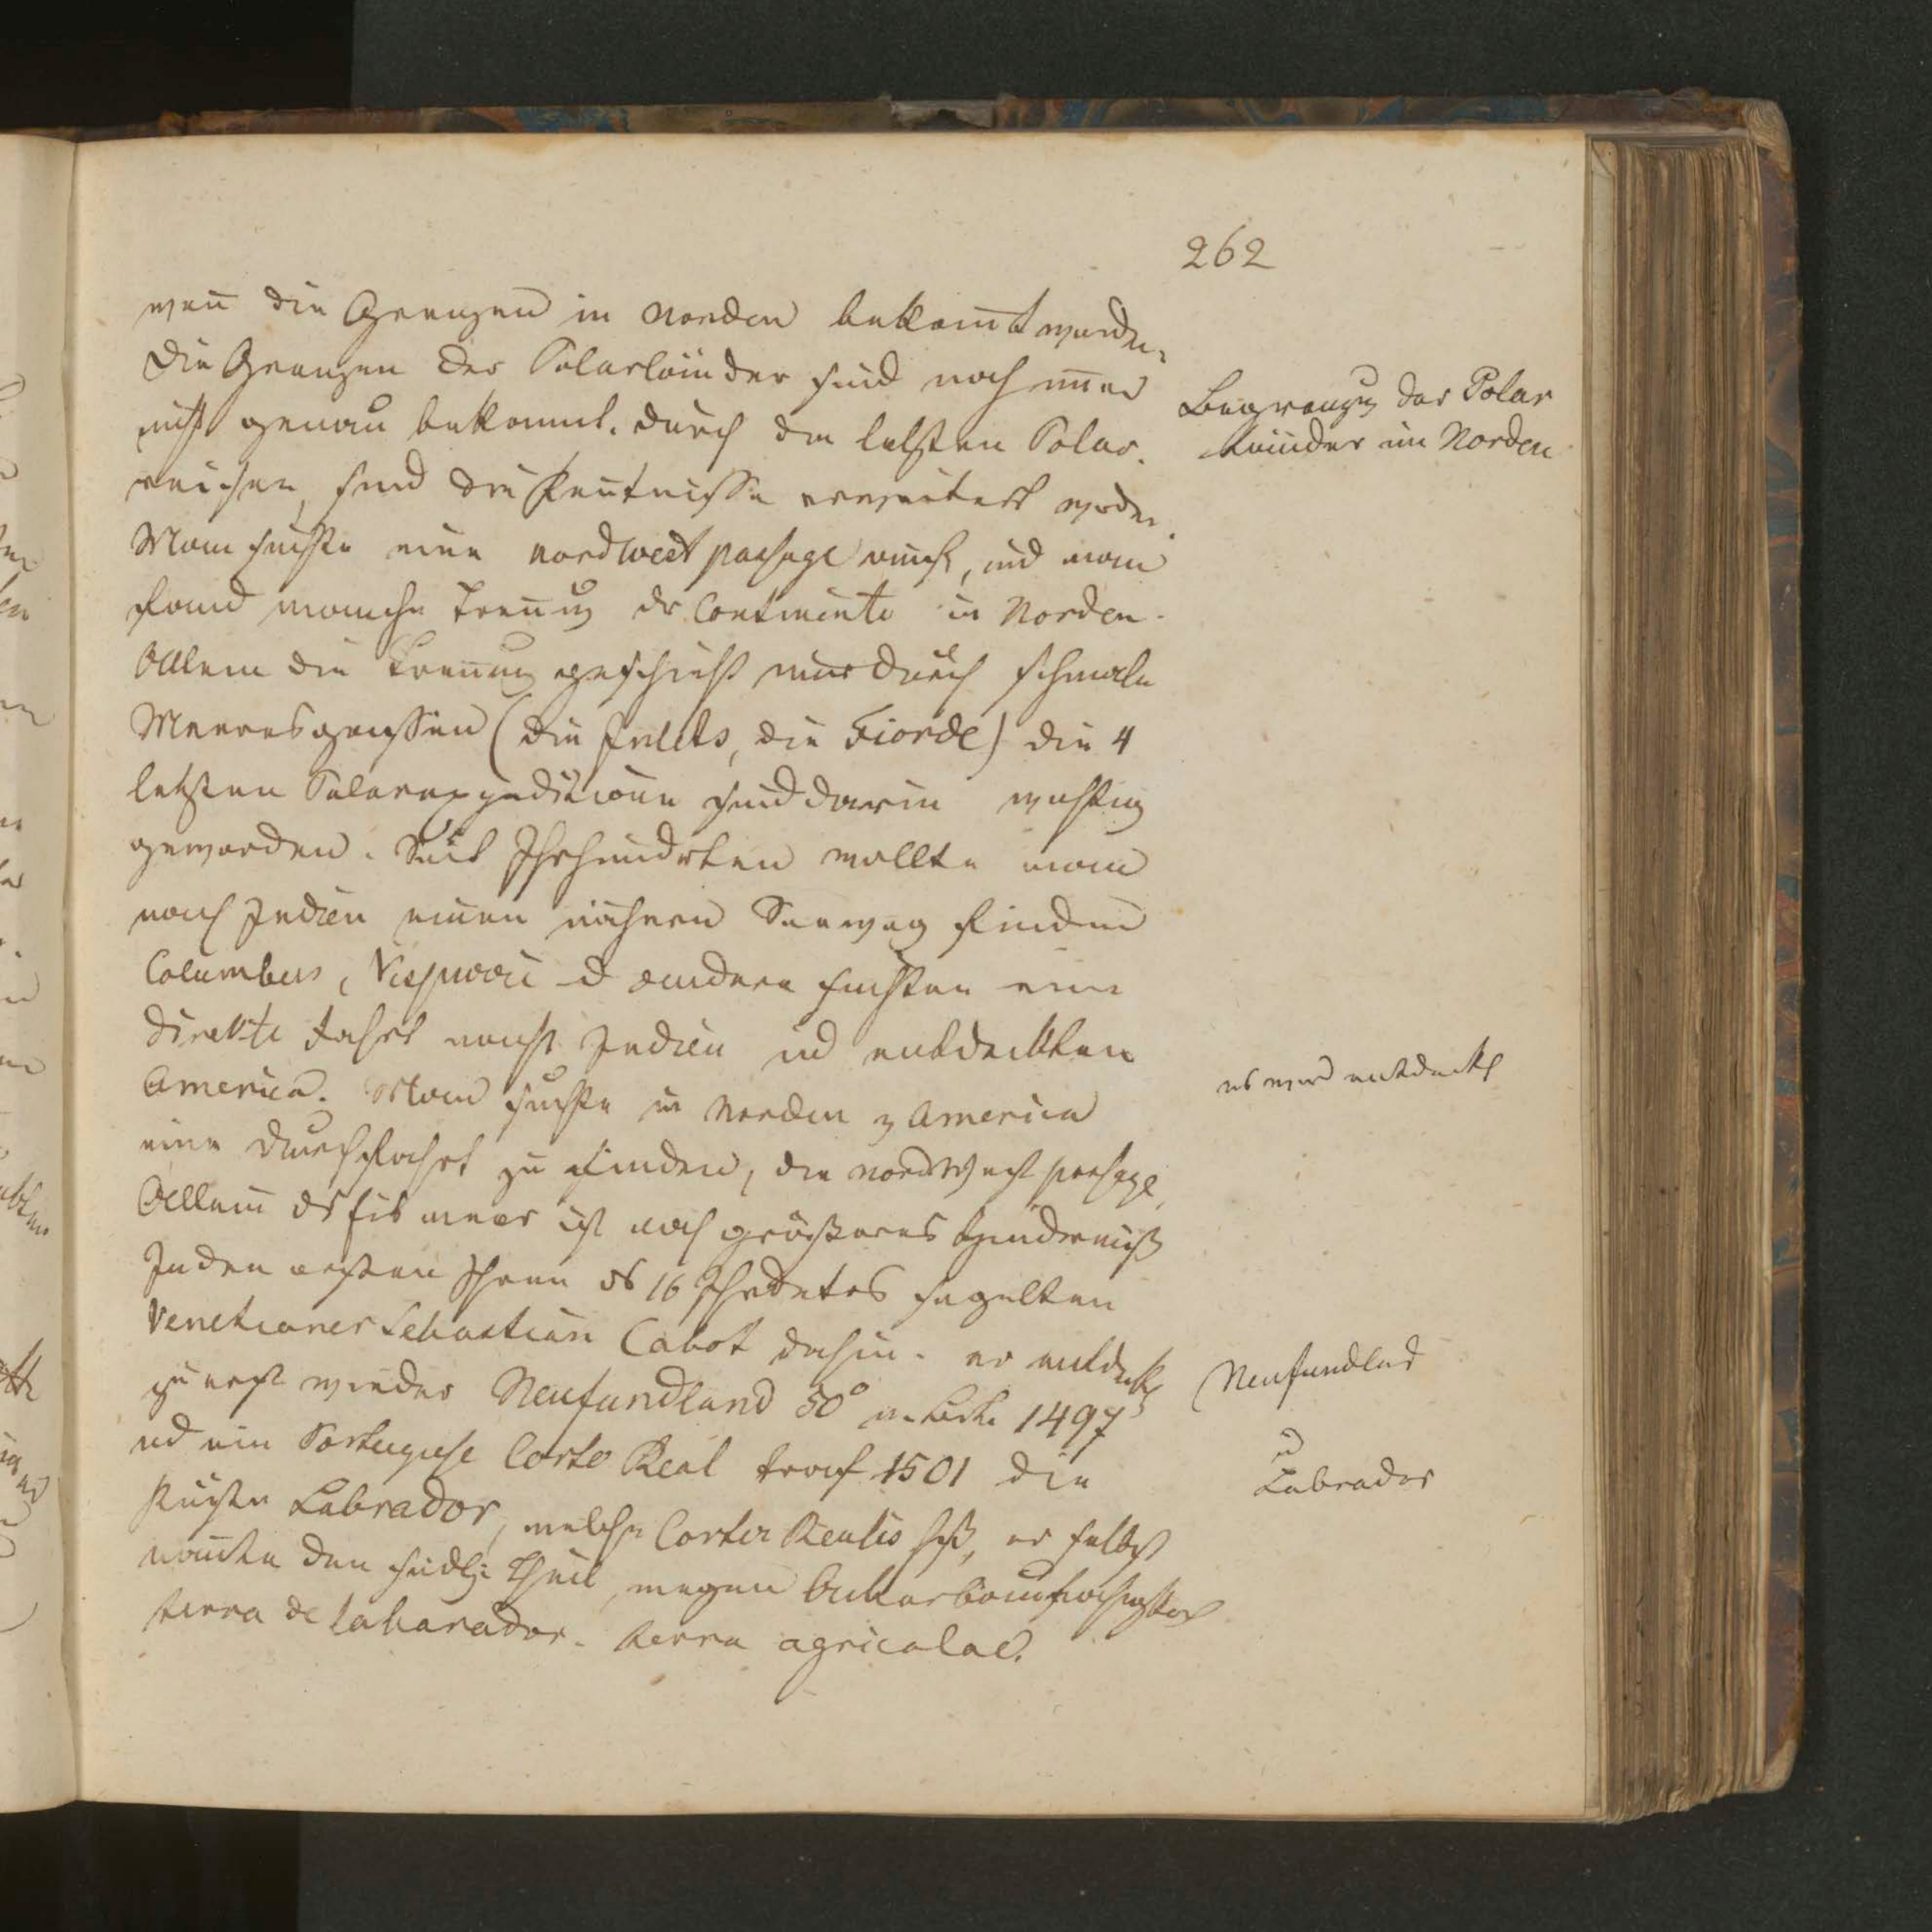 262
wen̄ die Grenzen in Norden bekan̄t wurden.
Die Granzen der Polarländer sind noch im̄er
nicht genau bekannt. Durch die letzten Polar-
reisen, sind die Ken̄tnisse erweitert worden.
Man suchte eine nordwest passage auch, und man
fand manche Tren̄ug dr Continente in Norden.
Allein die Tren̄ung geschieht nur durch schmale
Meeresgassen (die Inlets, die Fiorde) die 4
letzten Polarexpeditionen sind darin wichtig
geworden. Seit Jhrhundrten wollte man
nach Indien einen nähern Seeweg finden
Columbus, Vespucci u andere suchten eine
direkte Fahrt nach Indien ud entdeckten
America. Man suchte in Norden v America
eine Durchfahrt zu finden, die nordwest passage,
Allein ds Eis meer ist noch größeres Hinderniß
In den ersten Jhren ds 16 Jhrdetes segelten
Venetianer Sebastian Cabot dahin. er entdeckt
zu erst wieder Neufundland 50° n. Breite 1497
ud ein Portugiese Corte Real traf 1501 die
Küste Labrador, welche Corter Realis hß, er selbst
nannte den südl. Theil, wegen
terra de labarador. terra agricolae.
Begranzug der Polar
länder im Norden
es wird entdeckt
Neufundlad
u
Labrador